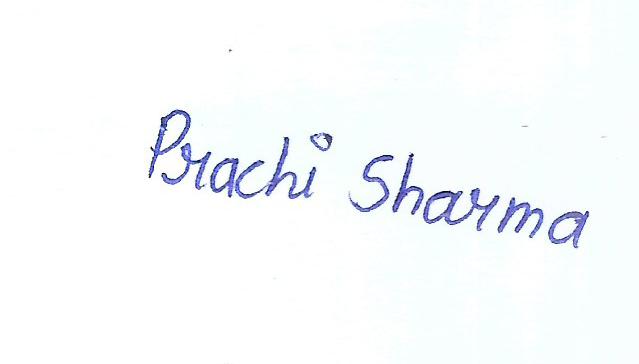 Prachi Sharma